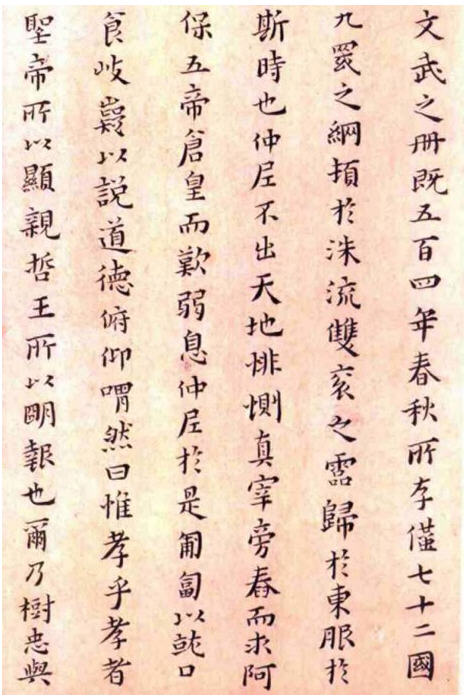 文武之冊既五百四年春秋所存僅七十二國
九罭之綱頓於洙流雙袞之靈歸於東服於
斯時也仲尼不出天地悱惻真宰旁舂而求阿
保五帝倉皇而歎弱息仲尼於是匍匐以就口
食岐嶷以說道德俯仰喟然曰惟孝乎孝者
聖帝所以顯親哲王所以朙報也爾乃樹忠與